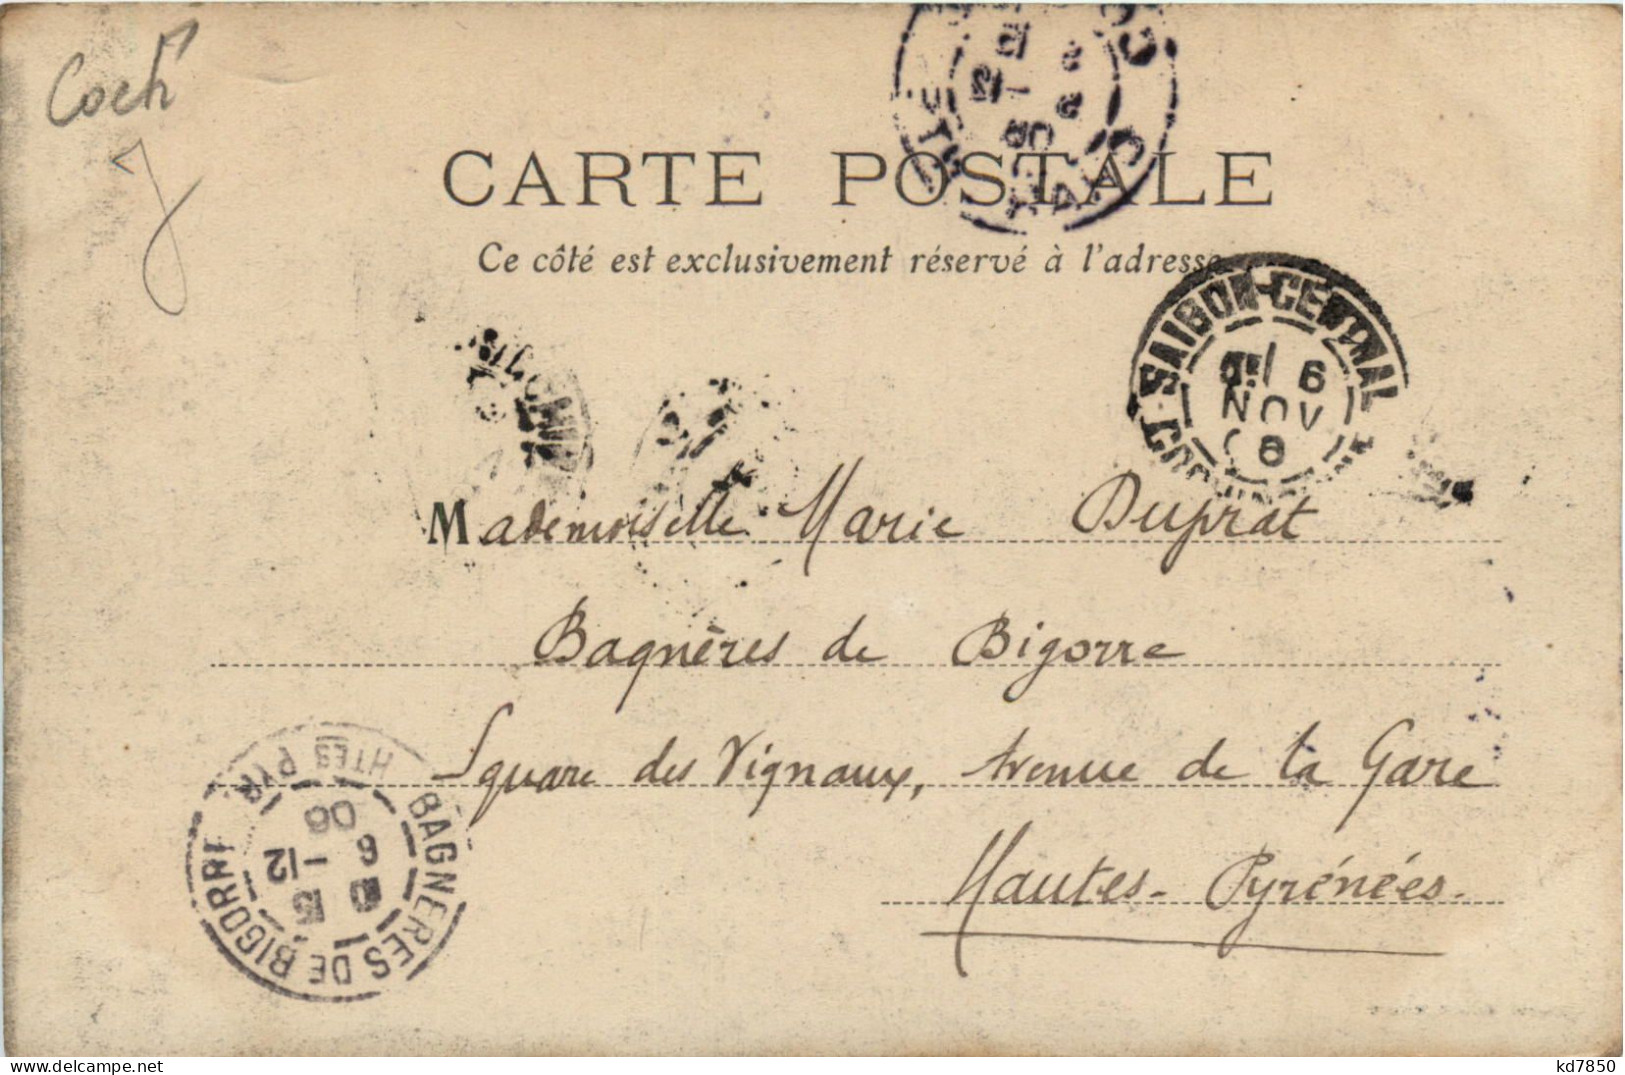 Coch
CARTE POSTALE
Ce côté est exclusivement réservé à l'adresse
SAIGON-CENTRAL
6
NOV
Mademoiselle Marie Duprat
Bagnères de Bigorre
Square des Vignaux, Avenue de la Gare
Hautes-Pyrénées.
BAGNÈRES DE BIGORRE
HTES PYR
6 -12
06
kd7850